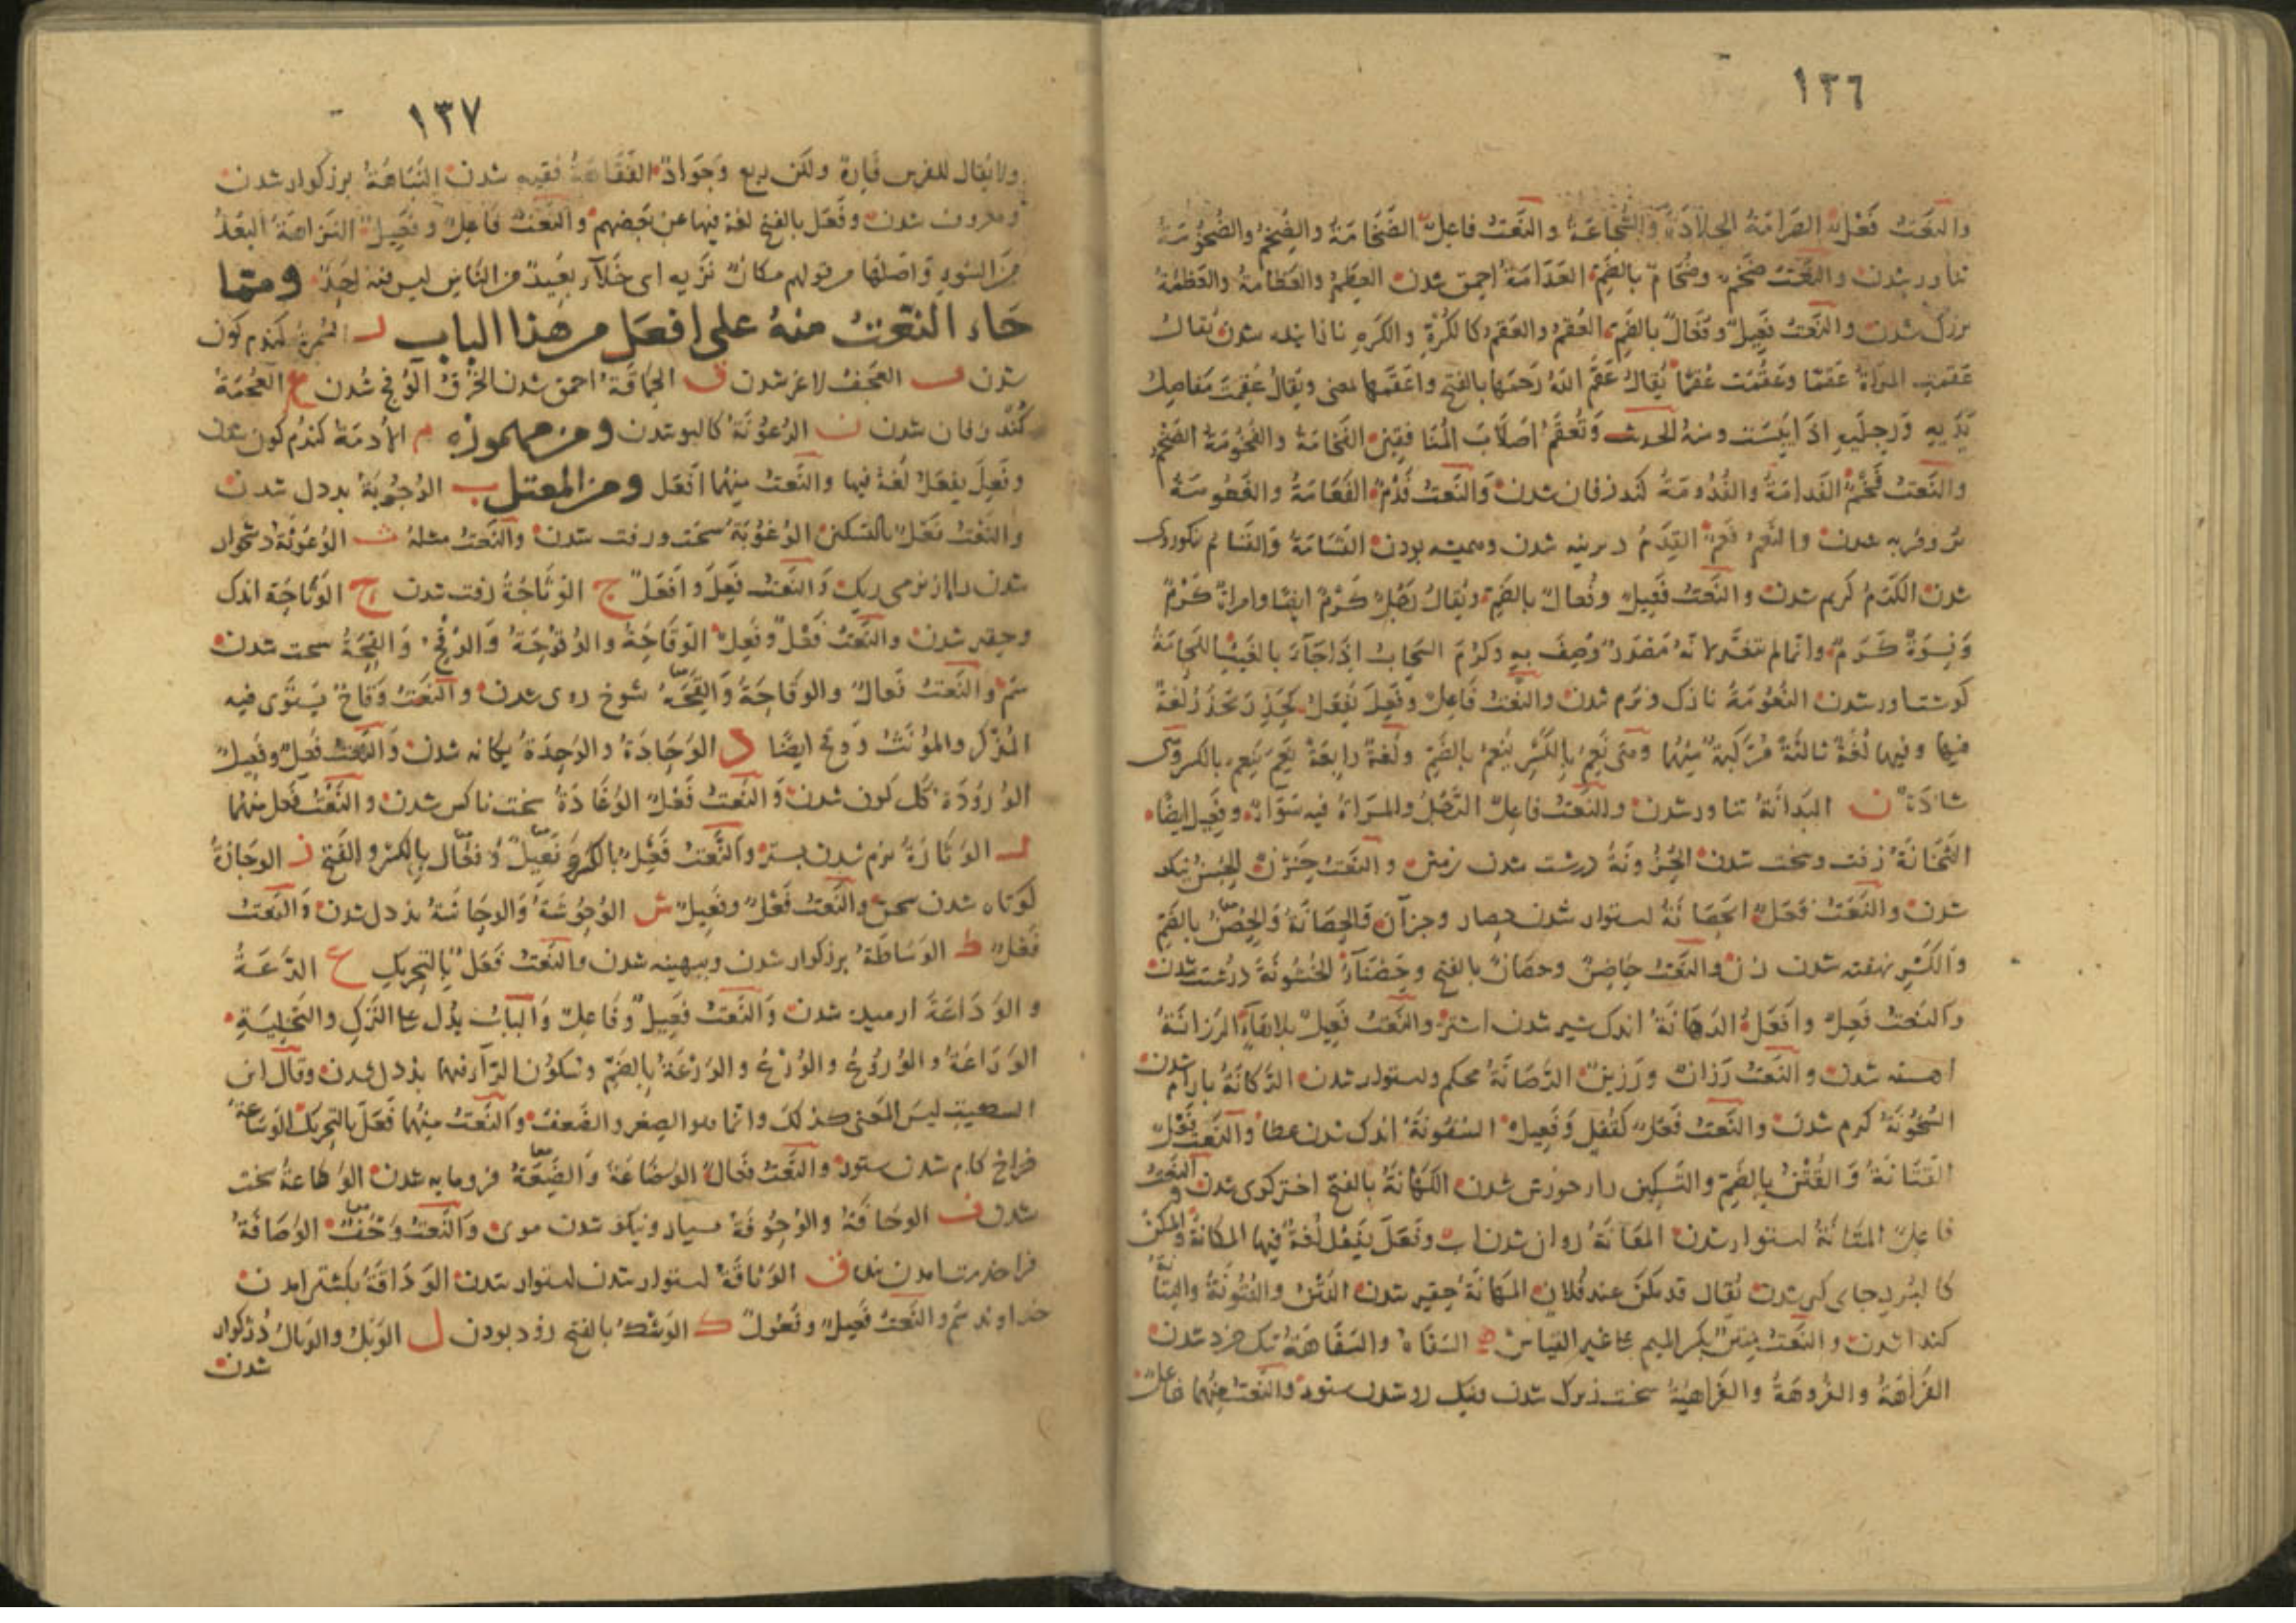 ١٣٦
والنعت فَعْلٌ الصَّرَامَةُ الجلادَةُ والشَّجاعَةُ والنَّعْتُ فاعِلٌ الضَّخَامَةُ والضِّخَمُ والضُّخُومَةُ
تناور شدن والنَّعْتُ ضَخْمٌ وضُخَامٌ بالضَّمِّ العَدَامَةُ احمق شدن العِظَمُ والعَظَامَةُ والعَظَمَةُ
بزرک شدن والنَّعْتُ فَعِيلٌ وفُعَالٌ بالضَّمِّ العُقْمُ والعَقْمُ كالكُرْهِ والكَرْهِ نازاينده شدن يُقالُ
عَقَمَتِ المرْاَةُ عَقْمًا وعَقُمَتْ عُقْمًا يُقالُ عَقَمَ اللهُ رَحِمَها بالفتح واعْقَمَها بمعنى ويُقالُ عُقِمَتْ مَفَاصِلُ
يَدَيهِ وَرِجلَيهِ اِذَا يَبِسَتْ ومنهُ الحديث وَتُعْقَمُ اَصْلَابُ المُنَافِقِينَ الفَخَامَةُ والفُخُومَةُ الضِّخَمُ
والنَّعتُ فَخْمٌ الفَدَامَةُ والفُدُومَةُ كند زفان شدن والنَّعتُ فَدْمٌ الفَعَامَةُ والفُعُومَةُ
پر و فربه شدن والنَّعتُ فَعْمٌ القِدَمُ ديرينه شدن وهميشه بودن القَسَامَةُ والقَسَامُ نيكوروى
شدن الكَرَمُ كريم شدن والنَّعتُ فَعِيلٌ وفُعالٌ بالضَّمِّ ويُقالُ رَجُلٌ كَرَمٌ ايضًا وامراةٌ كَرَمٌ
وَنِسْوَةٌ كَرَمٌ وانّما لم يتغيّر لانّهُ مَصْدَرٌ وُصِفَ بِهِ وكَرُمَ السَّحابُ اِذَا جَآءَ بالغَيْثِ اللَّحامَةُ
كوشتاور شدن النُّعُومَةُ نازک ونرم شدن والنعتُ فاعِلٌ وفَعِلَ يَفْعَلُ كحَذِرَ يَحْذَرُ لغةٌ
فيها وفيها لُغَةٌ ثالثةٌ مُرَكَّبةٌ مِنْهُما وهى نَعِمَ بالكَسْرِ يَنْعُمُ بالضَّمِّ ولُغةٌ رابِعَةٌ نَعِمَ يَنْعِمُ بالكسر وهى
شاذّةٌ ن البَدانَةُ تناور شدن والنعتُ فاعِلٌ الرَّجُلُ والمرْاَةُ فيه سَوَآءٌ وفَعِيلٌ ايضًا
الثَّخَانَةُ زفت وسخت شدن الحُزُونَةُ درشت شدن زمين والنعتُ حَزْنٌ الحُسْنُ نيكو
شدن والنَّعْتُ فَعَلٌ الحَصَانَةُ استوار شدن حصار وجزآن والحَصَانَةُ والحُصْنُ بالضَّمِّ
والكَسْرِ نهفته شدن زن والنعت حاصِنٌ وحصانٌ بالفتح وحَصْنَآءُ الخُشُونَةُ درشت شدن
والنعتُ فَعِلٌ وافْعَلُ الدَّهَانَةُ اندک شير شدن اشتر والنعتُ فَعِيلٌ بلا هَآءِ الرَّزَانَةُ
اهسته شدن والنَّعتُ رَزانٌ ورَزِينٌ الرَّصَانَةُ محكم واستوار شدن الرَّكانَةُ بارام شدن
السُّخُونَةُ كرم شدن والنَّعتُ فُعْلٌ كَقُفْلٍ وفَعِيلٌ الشُّفُونَةُ اندک شدن عطا والنَّعتُ فَعْلٌ
القَتَانَةُ والقُتْنُ بالضَّمِّ والتَّسكِينِ خوارخورش شدن الكَهَانَةُ بالفتح اختركوى شدن والنَّعتُ
فاعِلٌ المَتَانَةُ استوار شدن المَعَانَةُ روان شدن اب وفَعَلَ يَفْعَلُ لُغةٌ فيها المَكانَةُ والمَكْنُ
كاليُسْرِ جاى كير شدن يُقالُ قد مَكُنَ عند فُلانٍ المَهَانَةُ حقير شدن النَّتْنُ والنُّتُونَةُ والنَّتَانَةُ
كندا شدن والنَّعتُ مِنتِنٌ بكسر الميم على غير القياس ه السَّفَاهُ والسَّفَاهَةُ تنک خرد شدن
الفَرَاهَةُ والفُرُوهَةُ والفَرَاهِيَةُ سخت زيرک شدن ونيک رو شدن ستور والنعتُ مِنْهُما فاعِلٌ
١٣٧
ولا يُقال للفرس فارِهٌ ولكن رائع وجَوَادٌ الفَقَاهَةُ فقيه شدن النَّباهَةُ بزركوار شدن
ومعروف شدن وفَعَلَ بالفتح لغة فيها عن بَعْضِهِم والنعتُ فاعِلٌ وفَعِيلٌ النَّزاهَةُ البُعْدُ
مِنَ السُّوءِ واصْلُها من قولهم مكانٌ نَزِيهٌ اى خَلَآءٌ بَعِيدٌ من النّاسِ ليس فيه اَحَدٌ ومما
جاء النعتُ منهُ على افعل من هذا الباب ر السُّمْرَةُ كندم كون
شدن ف العَجَفُ لاغر شدن ق الحَمَاقَةُ احمق شدن الخُرْقُ الوُقْحُ شُدن م العُجْمَةُ
كُند زفان شدن ن الرُّعُونَةُ كاليو شدن ومن مهموزه م الأُدمَةُ كندم كون شدن
وفَعِلَ يفعَلُ لُغةٌ فيها والنَّعتُ مِنْهُما اَفْعَل ومن المعتل ب الوُجُوبَةُ بددل شدن
والنَّعْتُ فَعْلٌ بالتسكين الوُغُوبَةُ سخت وزفت شدن والنعتُ مثلهُ ث الوُعُوثَةُ دشخوار
شدن راه از نرمى ريک والنَّعتُ فَعِلٌ وافْعَلُ ج الوَثَاجَةُ زفت شدن ح الوَتَاحَةُ اندک
وحقير شدن والنَّعتُ فَعْلٌ وفَعِلٌ الوَقَاحَةُ والوُقُوحَةُ والوُقْحُ والقِحَةُ سخت شدن
سُم والنَّعتُ فَعالٌ والوقَاحَةُ والقِحَةُ شوخ روى شدن والنَّعتُ وَقَاحٌ يَسْتَوى فيه
المُذكّر والمؤنّثُ ووَقِحٌ ايضًا د الوَحَادَةُ والوَحْدَةُ يكانه شدن والنَّعتُ فَعِلٌ وفَعِيلٌ
الوُرُودَةُ كل كون شدن والنَّعتُ فَعْلٌ الوُغَادَةُ سخت ناكس شدن والنَّعْتُ فَعْل منهُما
ر الوَثَارَةُ نرم شدن بستر والنَّعتُ فَعْلٌ بالكسر وفَعِيلٌ وفِعَال بالكسر والفَتح ز الوَجَازَةُ
كوتاه شدن سخن والنَّعتُ فَعْلٌ وفَعِيلٌ ش الوُحُوشَةُ والوحَاشَةُ بددل شدن والنَّعتُ
فَعْلٌ ط الوَسَاطَةُ بزركوار شدن وبهينه شدن والنَّعت فَعَلٌ بالتحريک ع الدَّعَةُ
والوَدَاعَةُ ارميده شدن والنَّعتُ فَعِيلٌ وفَاعِلٌ والبابُ يدُل على التَّركِ والتَّخلِيَةِ
الوَرَاعَةُ والوُرُوعُ والوُرْعُ والوُرْعَةُ بالضَّمِّ وسُكُون الرّآءِ فيهما بددل شدن وقال ابن
السكيت ليس المَعنى كذلك وانّما هو الصِغر والضَّعف والنعتُ مِنْهُما فَعَلٌ بالتحريک الوَسَاعَةُ
فراخ كام شدن ستور والنَّعتُ فَعالٌ الوَضَاعَةُ والضَّعَةُ فرومايه شدن الوَقاعَةُ سخت
شدن ف الوَحَافَةُ والوُحُوفَةُ بسيار ونيكو شدن موى والنَّعتُ وَحْفٌ الوَصَافَةُ
فراخدمت امدن بنده ق الوَثَاقَةُ استوار شدن استوار شدن الوَدَاقَةُ بكشتن امدن
خداوند سُم والنَّعتُ فَعِيلٌ وفَعُولٌ ک الوَشْكُ بالفتح زود بودن ل الوَبْلُ والوَبالُ دژكوار
شدن